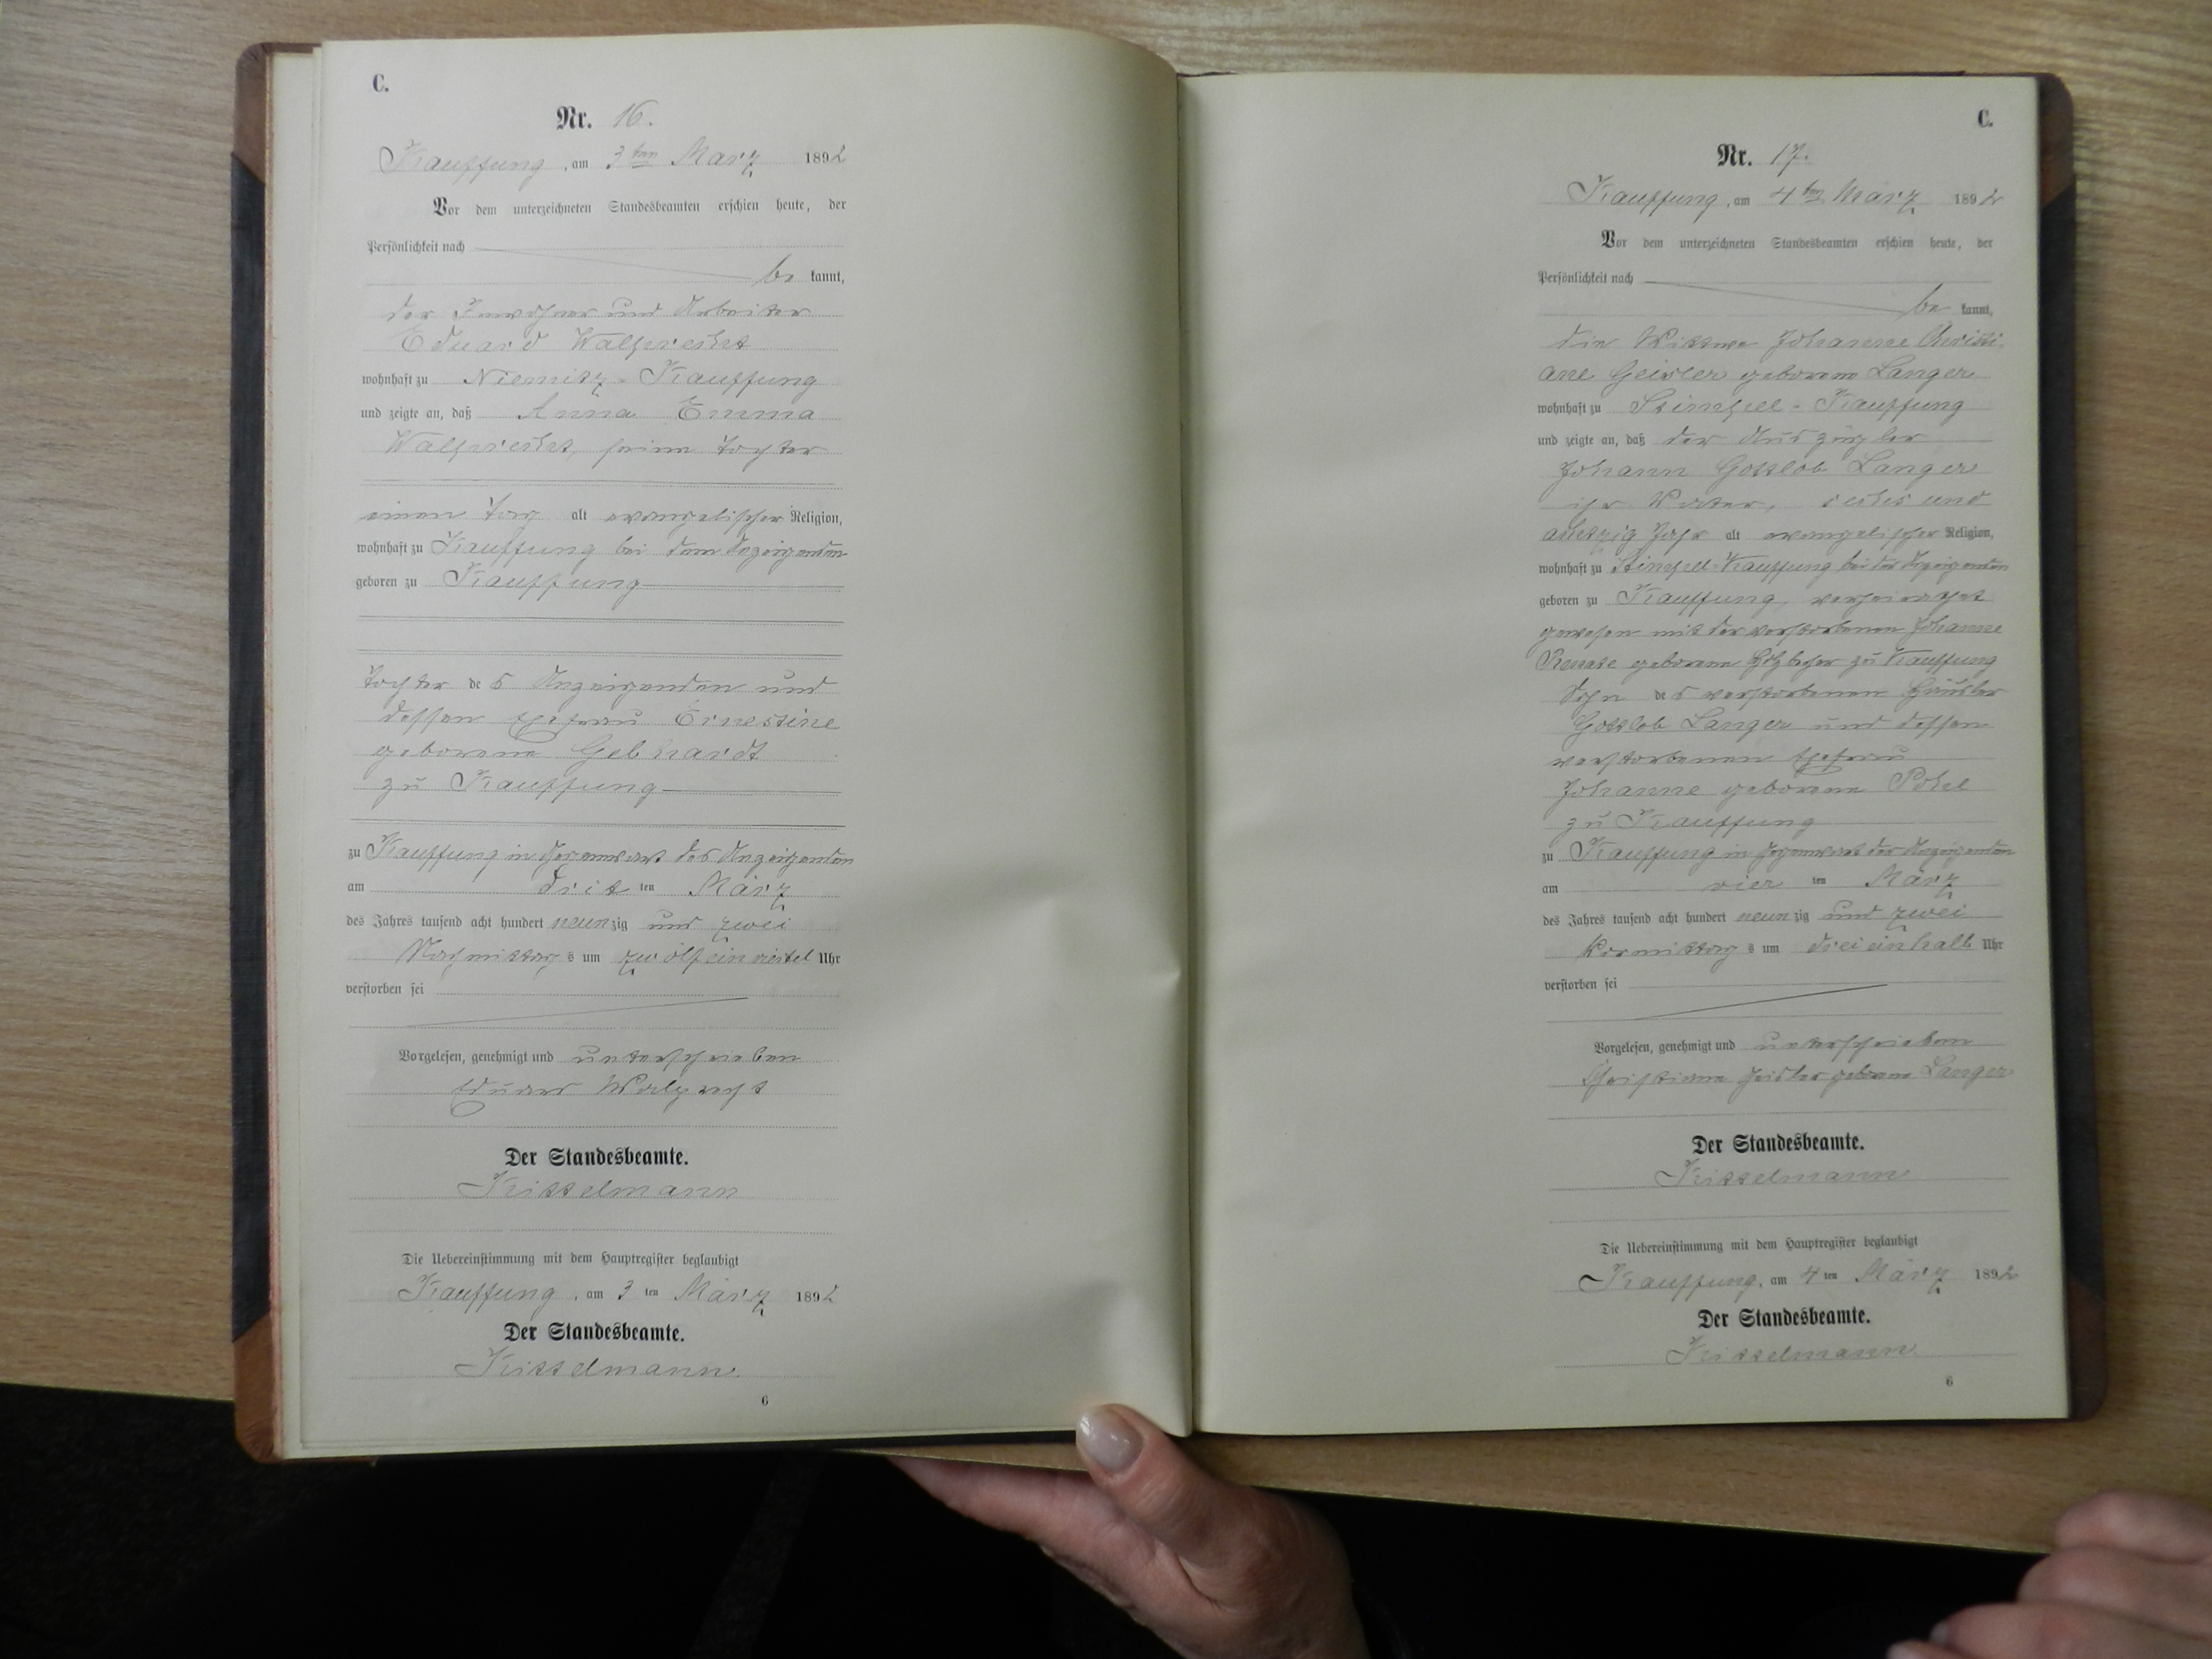 C.
Nr. 16.
Kauffung, am 3ten März 1892
Vor dem unterzeichneten Standesbeamten erschien heute, der
Persönlichkeit nach
be kannt,
der Inwohner und Arbeiter
Eduard Walprecht
wohnhaft zu Niemitz-Kauffung
und zeigte an, daß Anna Emma
Walprecht, seine Tochter
einen Tag alt evangelischer Religion,
wohnhaft zu Kauffung bei dem Anzeigenden
geboren zu Kauffung
Tochter des Anzeigenden und
dessen Ehefrau Ernestine
geborene Gebhardt
zu Kauffung
zu Kauffung in Gegenwart des Anzeigenden
am dritten März
des Jahres tausend acht hundert neunzig und zwei
Nachmittags um zwölf ein viertel Uhr
verstorben sei
Vorgelesen, genehmigt und unterschrieben
Eduard Walprecht
Der Standesbeamte.
Kisselmann
Die Uebereinstimmung mit dem Hauptregister beglaubigt
Kauffung, am 3ten März 1892
Der Standesbeamte.
Kisselmann
6
C.
Nr. 17.
Kauffung, am 4ten März 1892
Vor dem unterzeichneten Standesbeamten erschien heute, der
Persönlichkeit nach
be kannt,
die Wittwe Johanne Christi-
ane Geisler geborene Langer
wohnhaft zu Stimpel-Kauffung
und zeigte an, daß der Auszügler
Johann Gottlob Langer
ihr Vater, sechs und
achtzig Jahr alt evangelischer Religion,
wohnhaft zu Stimpel-Kauffung bei der Anzeigenden
geboren zu Kauffung, verheirathet
gewesen mit der verstorbenen Johanne
Renate geborene zu Kauffung
Sohn des verstorbenen Häusler
Gottlob Langer und dessen
verstorbenen Ehefrau
Johanne geborene Pohl
zu Kauffung
zu Kauffung in Gegenwart der Anzeigenden
am vierten März
des Jahres tausend acht hundert neunzig und zwei
Vormittags um drei einhalb Uhr
verstorben sei
Vorgelesen, genehmigt und unterschrieben
Christiane Geisler geborene Langer
Der Standesbeamte.
Kisselmann
Die Uebereinstimmung mit dem Hauptregister beglaubigt
Kauffung, am 4ten März 1892
Der Standesbeamte.
Kisselmann
6